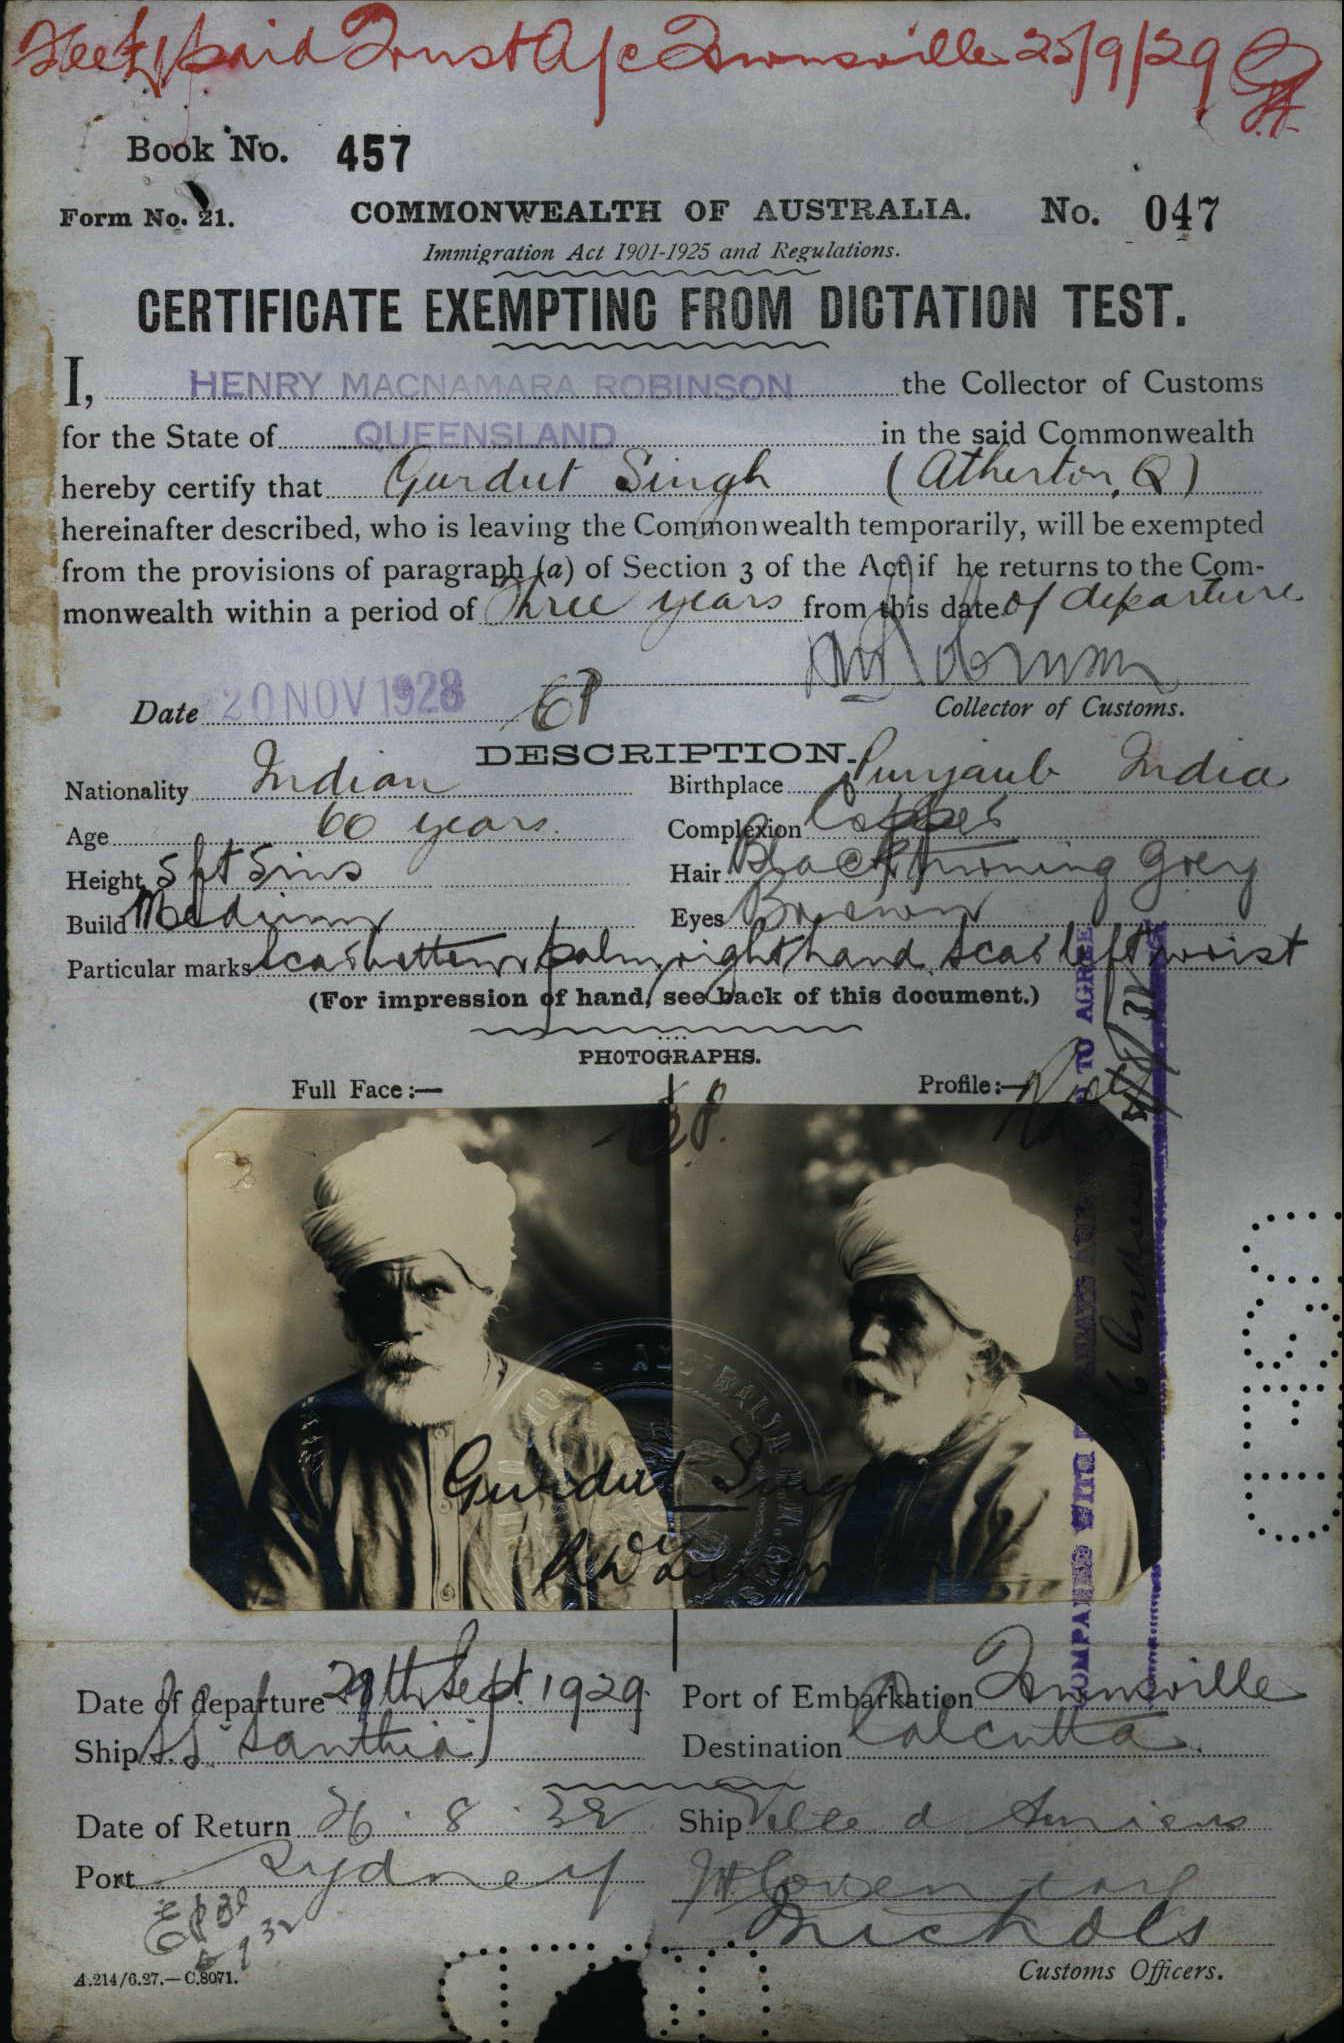 Fee £1 paid Trust A/c Townsville 25/9/29
Book No. 457
Form No. 21. COMMONWEALTH OF AUSTRALIA. No. 047
Immigration Act 1901-1925 and Regulations.
CERTIFICATE EXEMPTING FROM DICTATION TEST.
I, HENRY MACNAMARA ROBINSON the Collector of Customs
for the State of QUEENSLAND in the said Commonwealth
hereby certify that Gurdut Singh (Atherton, Q)
hereinafter described, who is leaving the Commonwealth temporarily, will be exempted
from the provisions of paragraph (a) of Section 3 of the Act if he returns to the Com-
monwealth within a period of Three years from this date of departure
Robinson
Date 20 NOV 1928 Collector of Customs.
DESCRIPTION.
Nationality Indian Birthplace Punjaub India
Age 60 years. Complexion Copper
Height 5 ft 5 ins Hair Black turning Grey
Build Medium Eyes Brown
Particular marks Scar bottom palm right hand, Scar left wrist
(For impression of hand, see back of this document.)
PHOTOGRAPHS.
Full Face:— Profile:—
COMPARED WITH TO AGREE
Gurdut Singh
Date of departure 29th Sept. 1929 Port of Embarkation Townsville
Ship S.S. "Santhia" Destination Calcutta.
Date of Return 26.8.32 Ship Ville d Amiens
Port Sydney
Nichols
Customs Officers.
A.214/6.27.—C.8071.